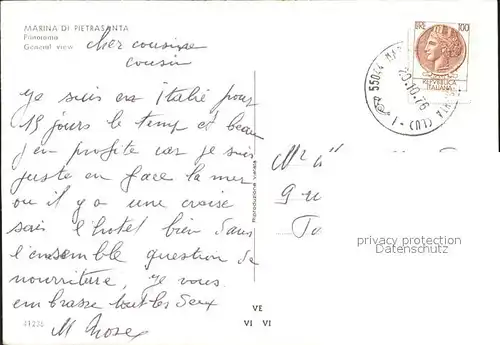 MARINA DI PIETRASANTA
Panorama
General view
cher cousine
cousin
je suis en Italie pour
15 jours le temp et beau
j'en profite car je suis
juste en face la mer
ou il y a une
l'hotel bien dans
l'ensemble question de
nourriture, je vous
embrasse tout les deux
M Rose
31236
Riproduzione vietata
LIRE 100
REPVBBLICA
ITALIANA
55044
20.10.76
VE
VI VI
privacy protection
(watermark)